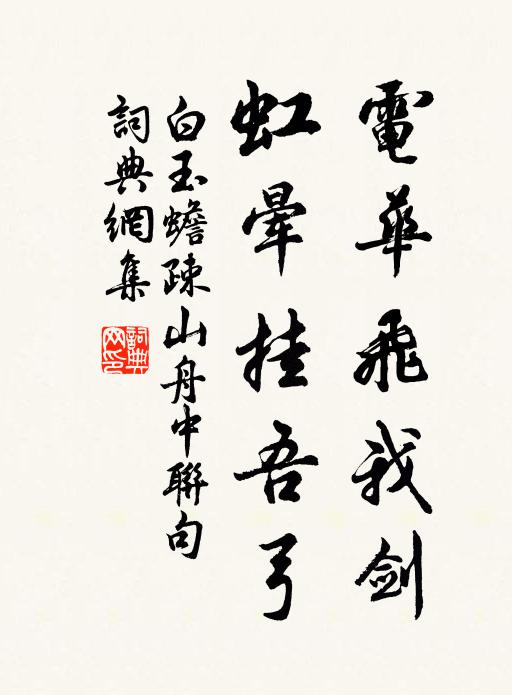 電華飛我劍
虹暈挂吾弓
白玉蟾疎山舟中聯句
詞典網集
詞典
网印